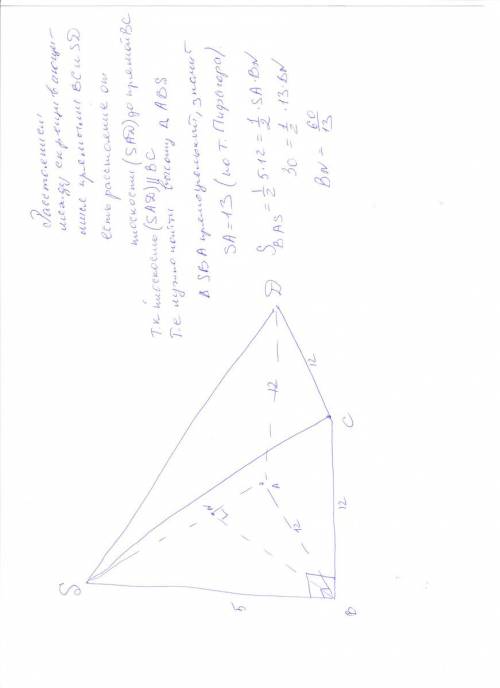 Расстоянием
между скрещивающи-
мися прямыми BC и SD
есть расстояние от
плоскости (SAD) до прямой BC
Т.к плоскость (SAD) || BC
Т.е нужно найти высоту Δ ABS
Δ SBA прямоугольный, значит
SA = 13 (по т. Пифагора).
S BAS = 1/2 5·12 = 1/2 · SA · BN
30 = 1/2 · 13 · BN
BN = 60/13
S
5
B
12
C
12
D
12
A
12
N